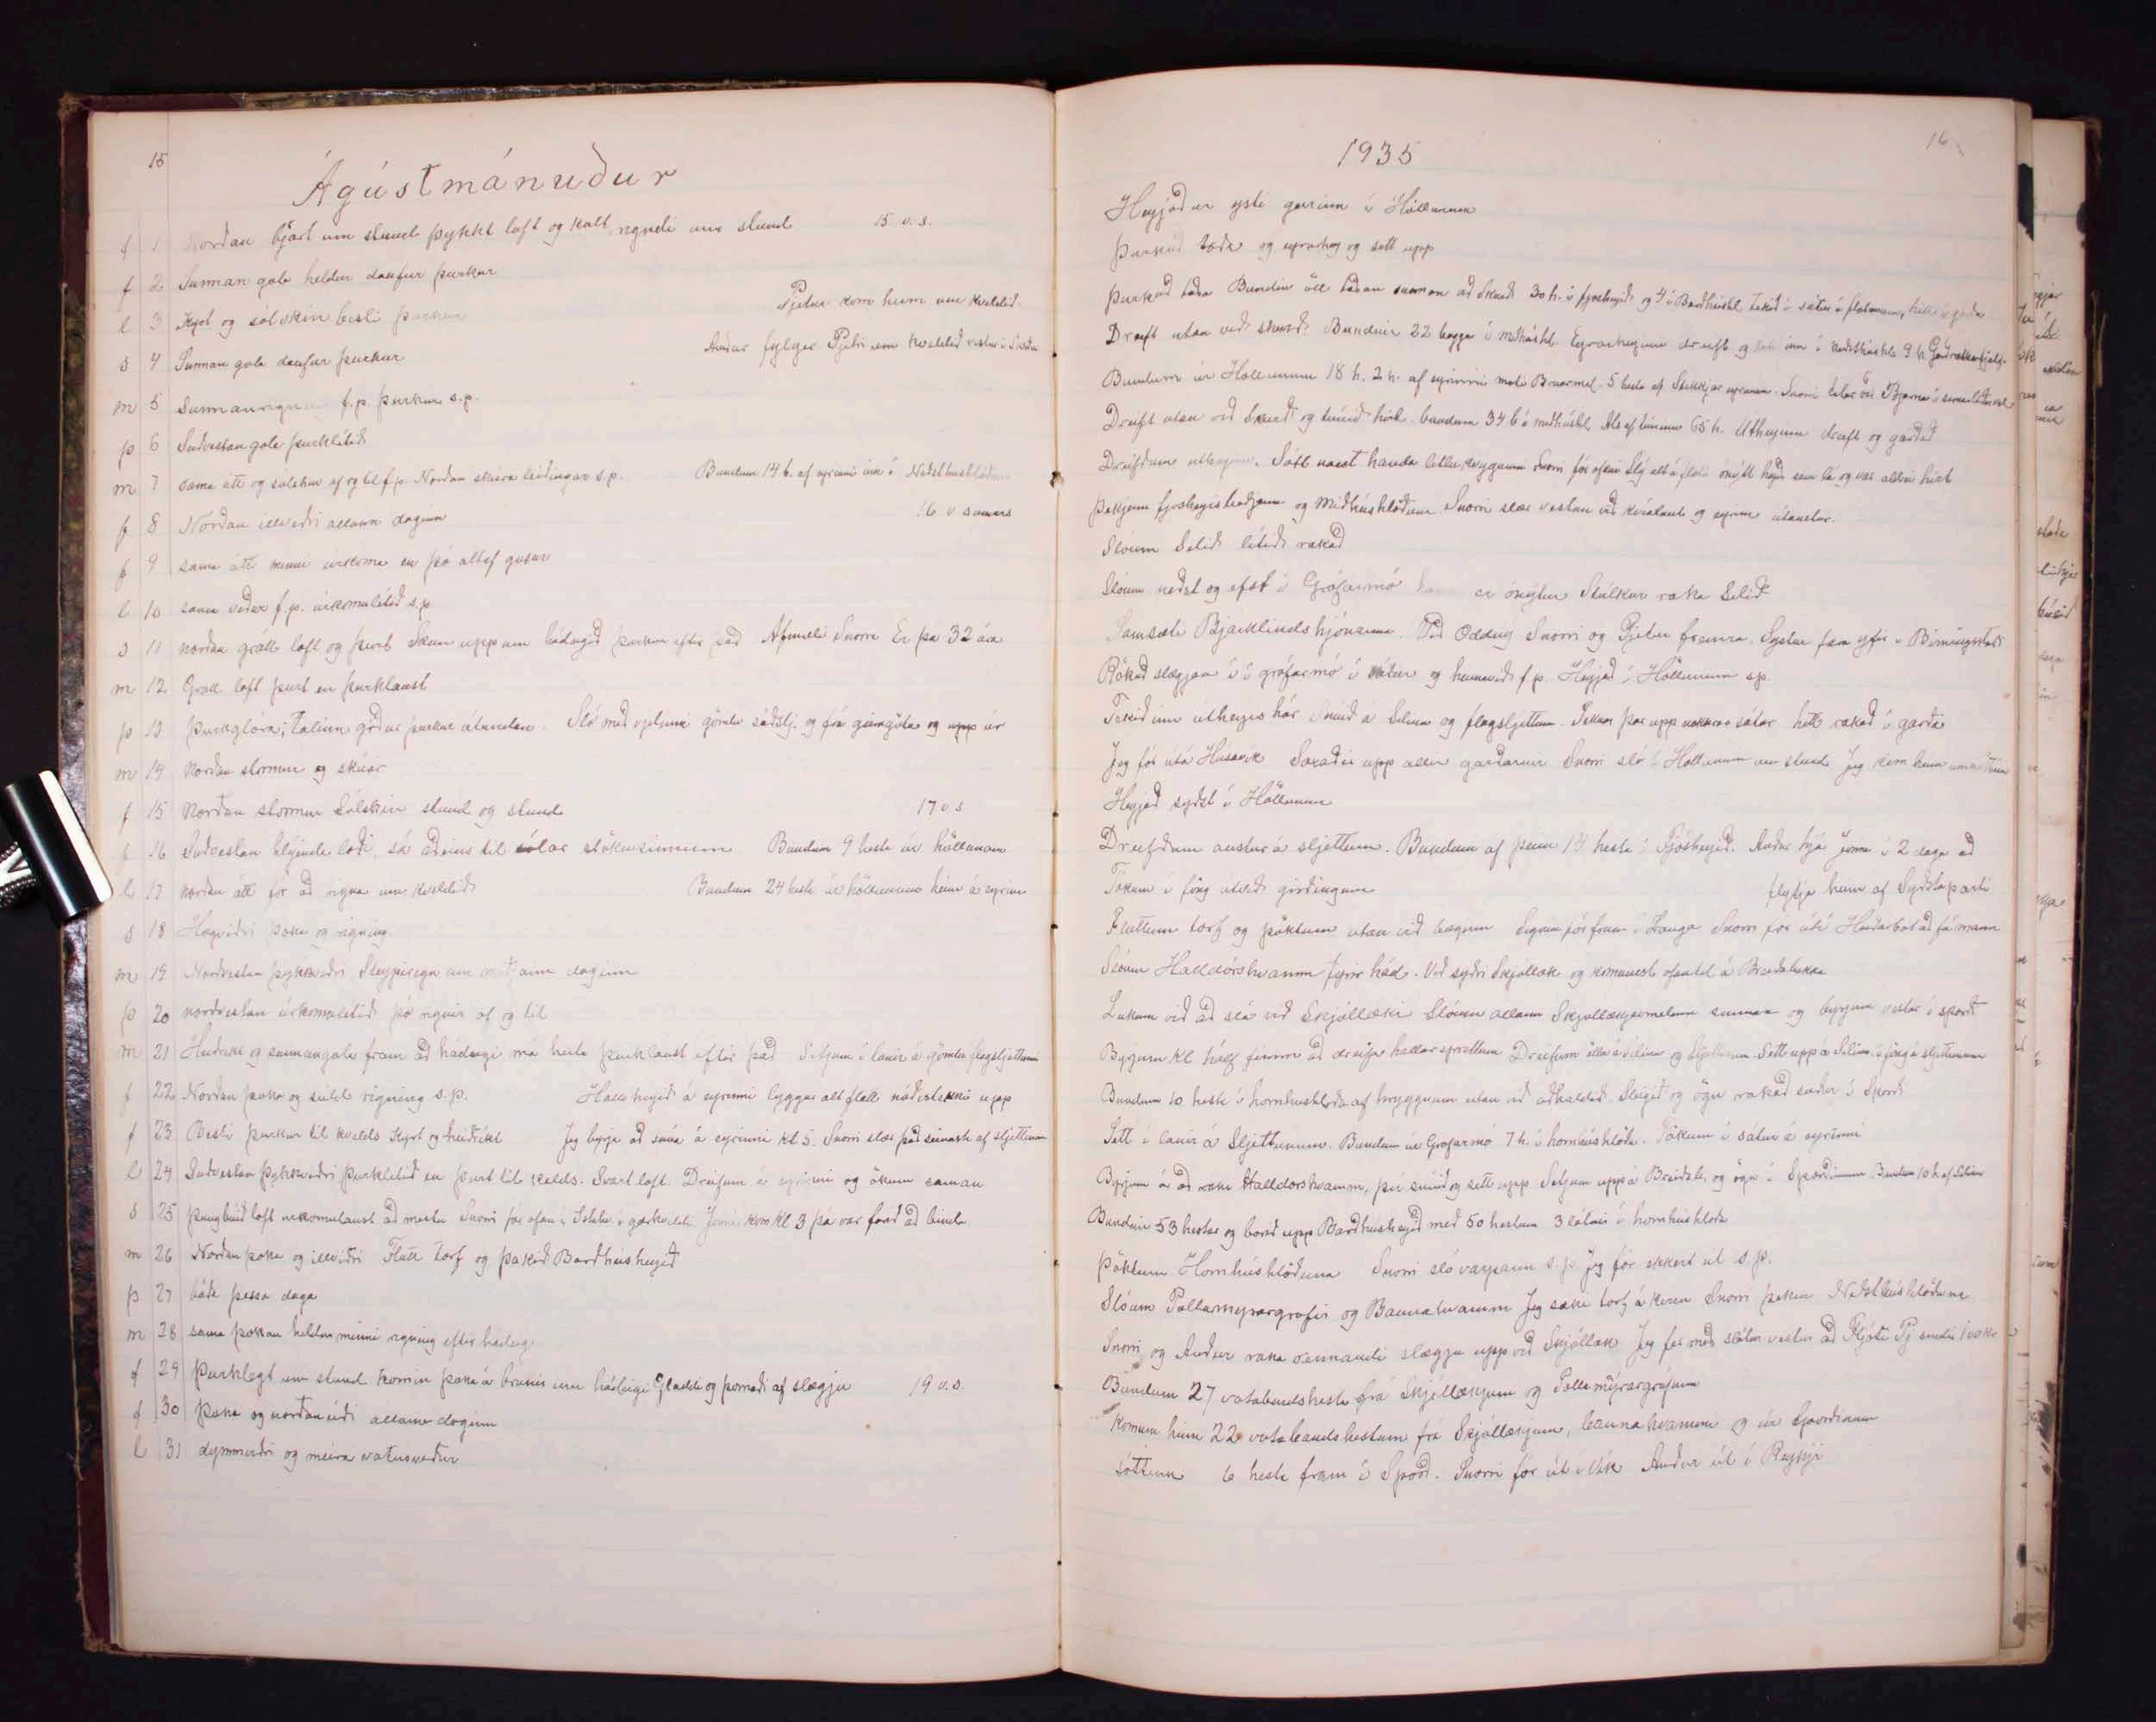 15
Ágústmánuður
f 1 Norðan bjart um stund þykkt loft og kalt rigndi um stund 15 v.s.
f 2 Sunnan gola heldur daufur þurkur
l 3 Kyrt og sólskin besti þurkur Pjetur kom heim um kveldið.
s 4 Sunnan gola daufur þurkur Auður fylger Pjetri um kveldið vestur í
m 5 Sunnanregn f.p. þurkur s.p.
þ 6 Suðvestan gola þurklítið
m 7 sama átt og sólskin af og til f.p. Norðan skúra leiðingar s.p. Bundum 14 b. af eyrinni inn í Neðsthúshlöðuna
f 8 Norðan illveðri allann daginn 16 v sumars
f 9 sama átt minni úrkoma en þó altaf gusur
l 10 sama veður f.p. úrkomulítið s.p.
s 11 norðan grátt loft og þurt Skein upp um hádegið þurkur eftir það Afmæli Snorra Er þá 32 ára
m 12 Grátt loft þurt en þurklaust
þ 13 Þurkglóra; talinn góður þurkur útundan. Sló með vjelinni gömlu sáðslj. og frá geirgötu og upp úr
m 14 Norðan stormur og skúrar
f 15 Norðan stormur Sólskin stund og stund 17 v.s
f 16 Suðvestan hlýinda loði, sá aðeins til sólar stökusinnum Bundum 9 hesta úr höllunum
l 17 norðan átt fór að rigna um kveldið Bundum 24 hesta úr höllunum heim á eyrina
s 18 Hægviðri þoka og rigning
m 19 Norðvestan þykkviðri Steypiregn um daginn
þ 20 norðvestan úrkomulítið þó rignir af og til
m 21 Heiðríkt og sunnangola fram að hádegi má heita þurklaust eftir það Setjum í lanir á gömlu flagsljettum
f 22 Norðan þoka og suld rigning s.p. Halla heyið á eyrinni liggur alt flatt náðist ekki upp
f 23 Besti þurkur til kvelds Kyrt og heiðríkt Jeg byrja að snúa á eyrinni kl 5. Snorri slær það seinasta af sljettum
l 24 Suðvestan þykkviðri þurklítið en þurt til kvelds. Svart loft. Dreifum á eyrinni og ökum saman
s 25 Þungbúið loft úrkomulaust að mestu Snorri fór ofan í gærkveldi. Jónas kom kl 3 þá var farið að binda
m 26 Norðan þoka og illviðri Flutt torf og þakið Barðhúsheyið
þ 27 báða þessa daga
m 28 sama þokan heldur minni rigning eftir hádegi
f 29 Þurklegt um stund komin þoka á brúnir um hádegi Gladdi og þornaði af slægju 19 v.s.
f 30 Þoka og norðan úði allann daginn
l 31 dymmviðri og meira vatnsveður
1935
16
Heyjaður ysti garrinn í Höllunum
Þurkuð taða og eyrarhey og sett upp
Þurkuð taða Bundin öll taðan sunnan að skurði 30 h. í fjósheyið og 4 í Barðhúshl. tekið í sátur á flötunum, hitt í garða
Dreift utan við skurð. Bundnir 22 baggar í miðhúshl. Eyrarheyinu dreift og inn í Neðsthúshl. 9 h.
Bundum úr Höllunum 18 h. 2 h. af eyrinni móti Brúarmel. 5 hesta af Stekkjar eyrunum. Snorri talar við Bjarna
Dreift utan við skurð og hirt. bundum 34 b í miðhúshl Als af túninu 65 h. Útheyinu dreift og garðað
Dreifðum útheyinu. Sótt naut handa litlu kvígunni Snorri fór ofan Slý alt á floti ónýtt heyið sem lá og var aldrei hirt
Þekjum fjósheyistóftina og Miðhúshlöðuna. Snorri slær vestan við kvíalaut og eyrina útaustur.
Slóum Selið lítið rakað
Slóum neðst og efst í Grófarmó er ónýtur Stúlkur raka Selið
Samsæti Bjarklindshjónanna. Það Oddný Snorri og Pjetur framra. Systur fara yfir á Birningsstaði
Rökuð slægjan í grófarmó í sátur og heimavið f.p. Heyjað í Höllunum sp.
Tekið inn útheyishár snúið á Selinu og flagsljettum. Tekur þar upp nokkrar sátur hitt rakað í garða
Jeg fór útá Húsavík Saxaðir upp allir garðarnir Snorri sló í Höllunum um stund Jeg kom heim um
Heyjað syðst í Höllunum
Dreifðum austur á sljettum. Bundum af þeim 14 hesta í Fjósheyið. Auður hjá Jónu í 2 daga að
Tökum í föng utvið girðingunni flytja heim af Syðstaparti
Fluttum torf og þöktum utan við bæginn Sigrún fór fram í Lauga Snorri fór útí Heiðarbót að fá mann
Slóum Halldórshvamm fyrir hád. Við syðri Skjóllæk og komumst ofantil á Breiðabakka
Lukum við að slá við Skjóllæki Slóum allann Skjóllækjarmelinn sunnan og byrjum vestur í sporði
Byrjum kl hálf fimm að dreifa hallarsprettum Dreifum illa á Selinu og Sljettunum. Sett upp á Selinu. í föng á sljettunum
Bundum 10 hesta í hornhúshlöðu af hryggnum utan við aðhaldið. Slegið og ögn rakað suður í Sporði
Sett í lanir á Sljettunum. Bundum úr Grófarmó 7 h. í hornhúshlöðu. Tökum í sátur á eyrinni
Byrjum á að raka Halldórshvamm, því snúið og sett upp Setjum upp á Breiðabk. og ögn í Sporðinum Bundum 10 h af Selinu
Bundnir 53 hestar og borið upp Barðhúsheyið með 50 hestum 3 látnir í hornhúshlöðu
Þöktum Hornhúshlöðuna Snorri sló varpann s.p. Jeg fór ekkert út s.p.
Slóum Pollamýrargrófir og Baunahvamm Jeg sæki torf á kerru Snorri þekur Neðsthúshlöðuna
Snorri og Auður raka rennandi slægju upp við Skjóllæk Jeg fer með slátur vestur að Fljóti Pj sendir 100 kr
Bundum 27 votabandshesta frá Skjóllækjum og Pollamýrargrófum
Komum heim 22 votabandshestum frá Skjóllækjum, baunahvammi og úr Sporðinum
sóttum 6 hesta fram í Sporð. Snorri fór út í Vík Auður út í Reykji